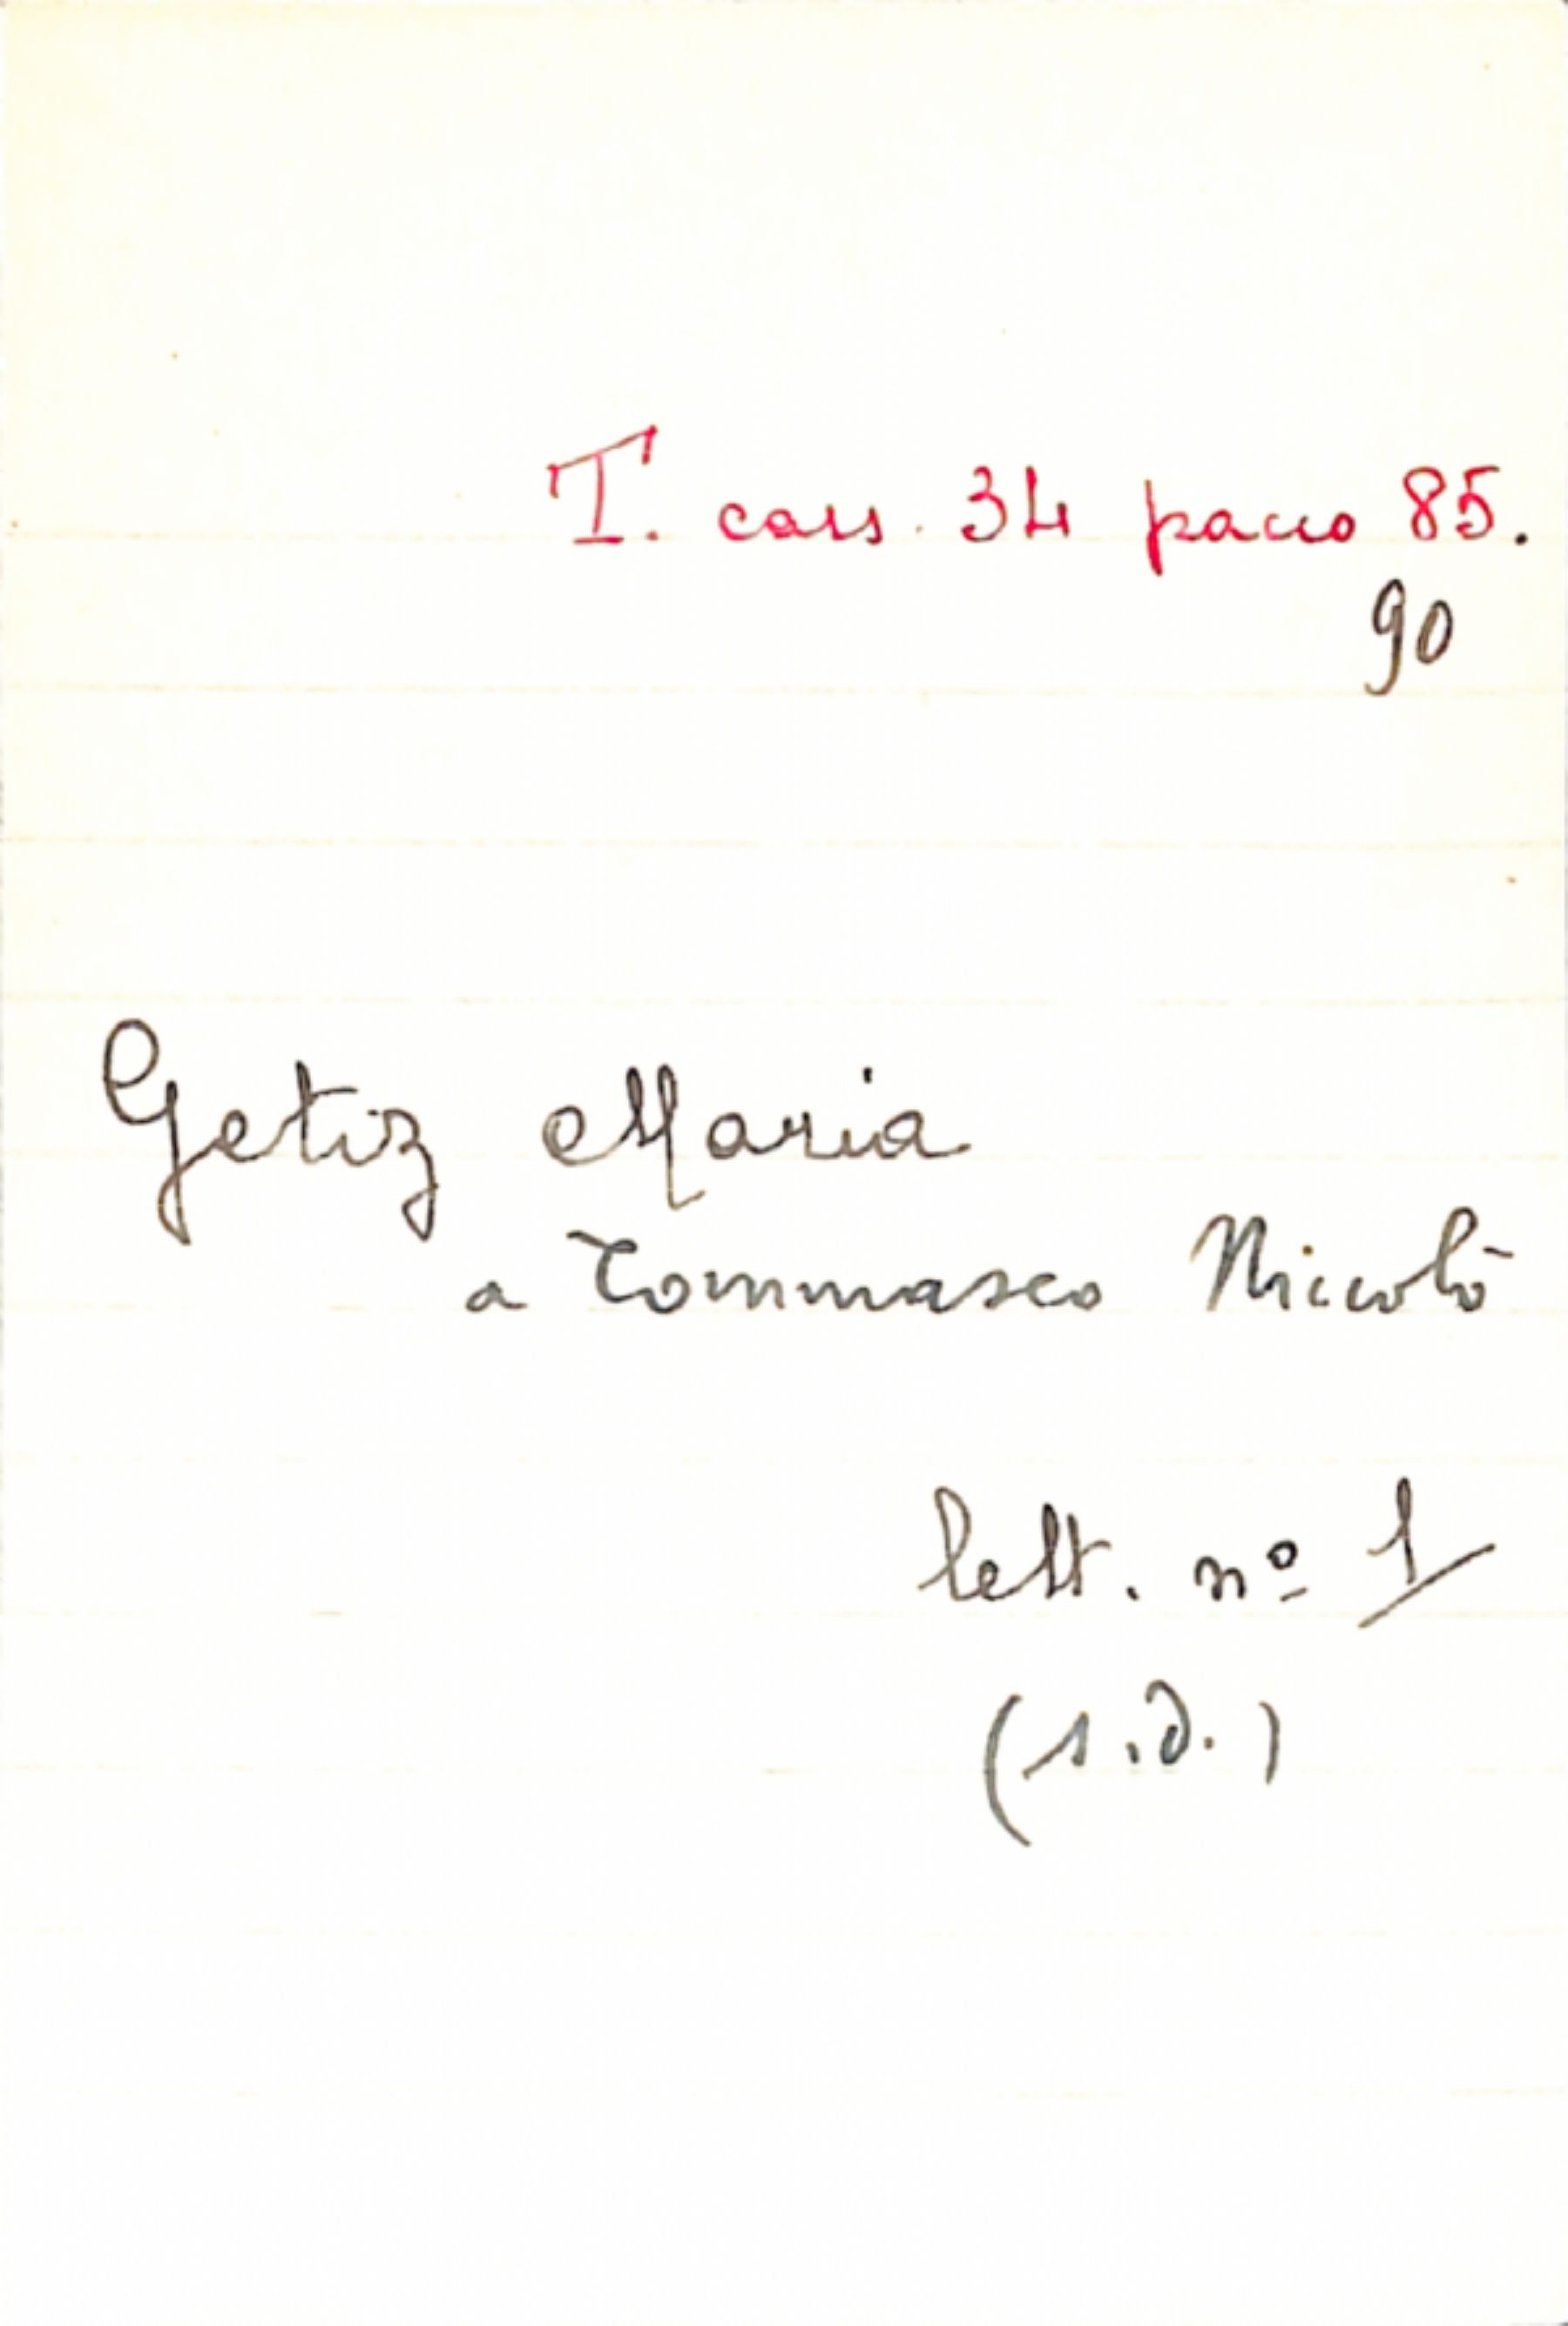 T. cass. 34 pacco 85.
90
Getiz Maria
a Tommaseo Niccolò
lett. nº 1
(s.d.)